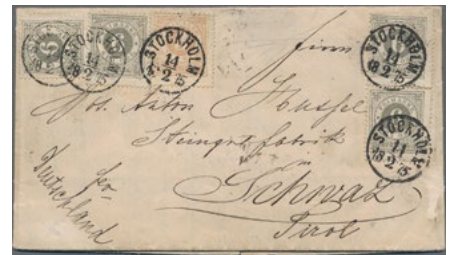 STOCKHOLM
14
2
18 75
STOCKHOLM
14
2
18 75
STOCKHOLM
14
2
18 75
STOCKHOLM
11
2
18 75
Firma
Jos. Anton Hussl
Steingutfabrik
in
Schwaz
Tirol
per
Deutschland